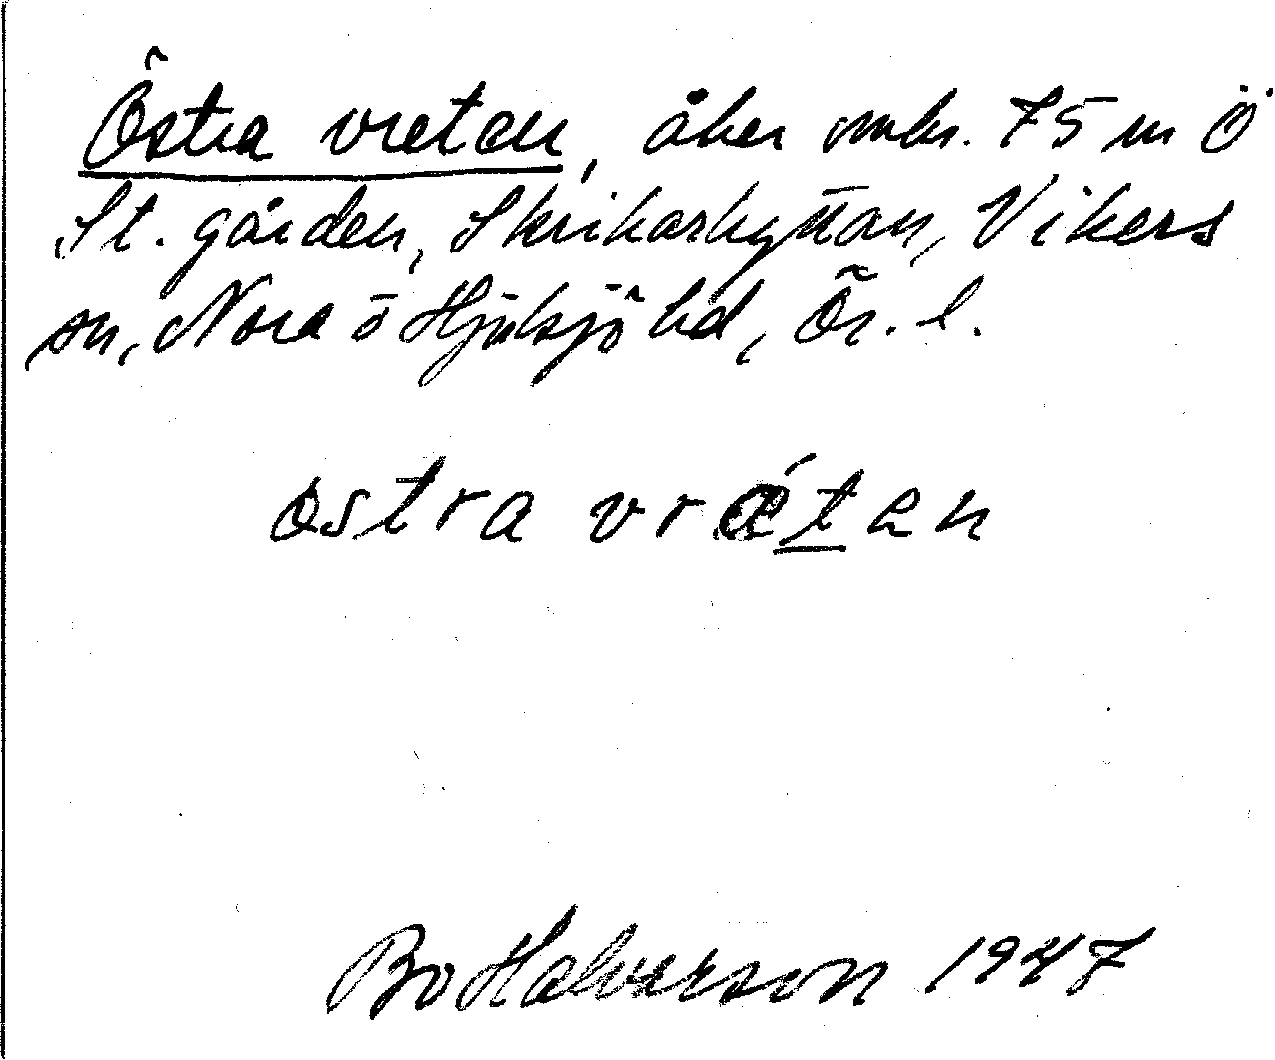 Östra vreten, åker omkr. 75 m Ö
St. gården, Skrikarhyttan, Vikers
sn, Nora o Hjulsjö hd, Ör. l.
östra vrǽten
Bo Halverson 1947